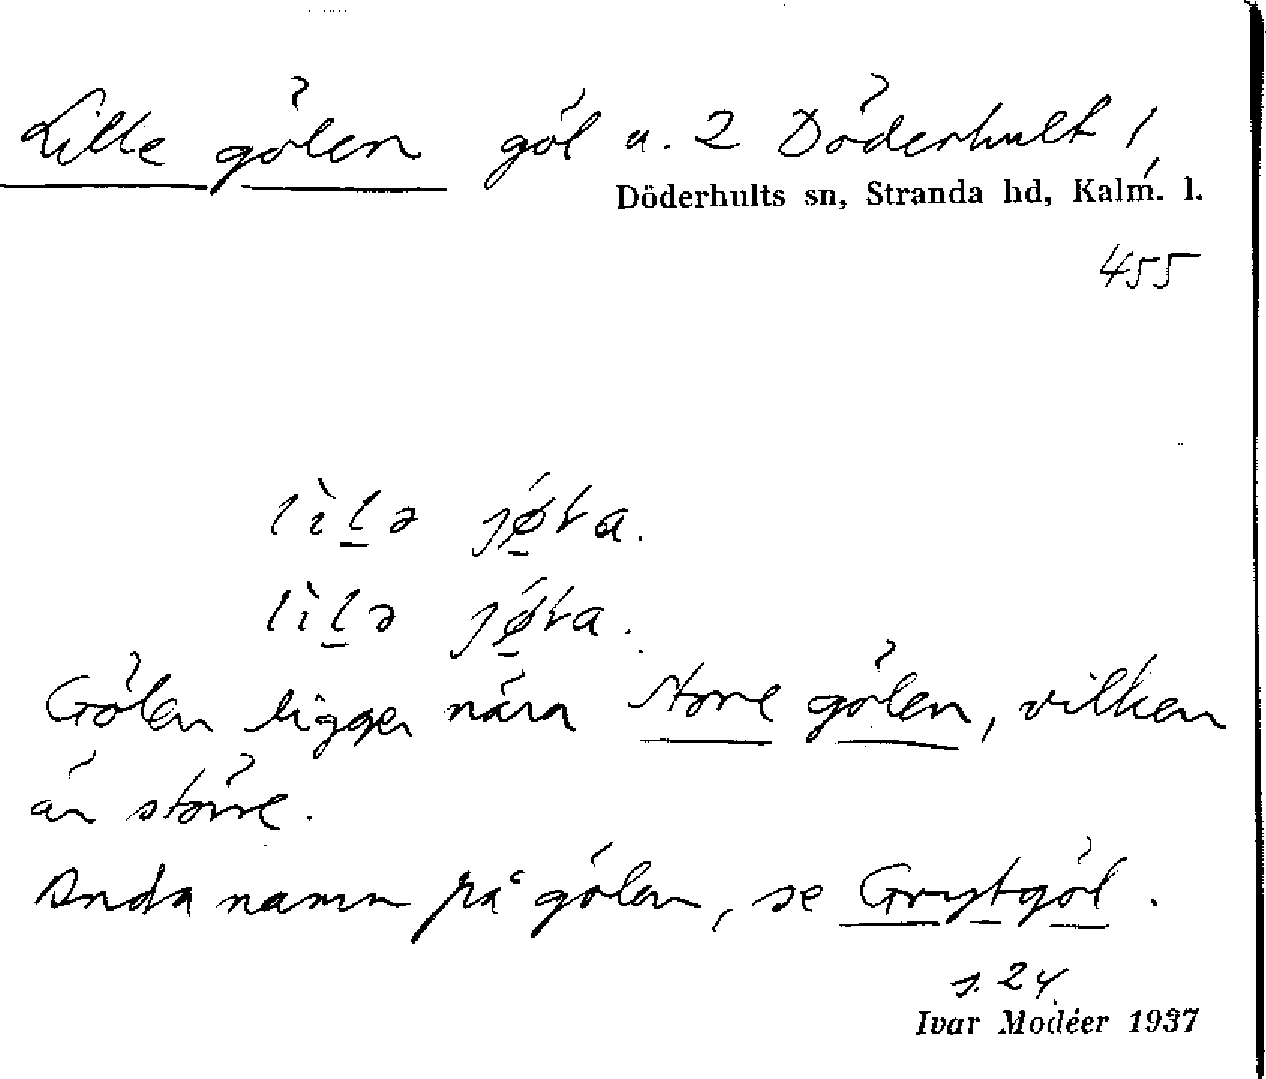 Lille gölen göl u. 2 Döderhult 1,
Döderhults sn, Stranda hd, Kalm. l.
455
Gölen ligger nära Store gölen, vilken
är större.
Andra namn på gölen, se Grytgöl.
s. 24.
Ivar Modéer 1937